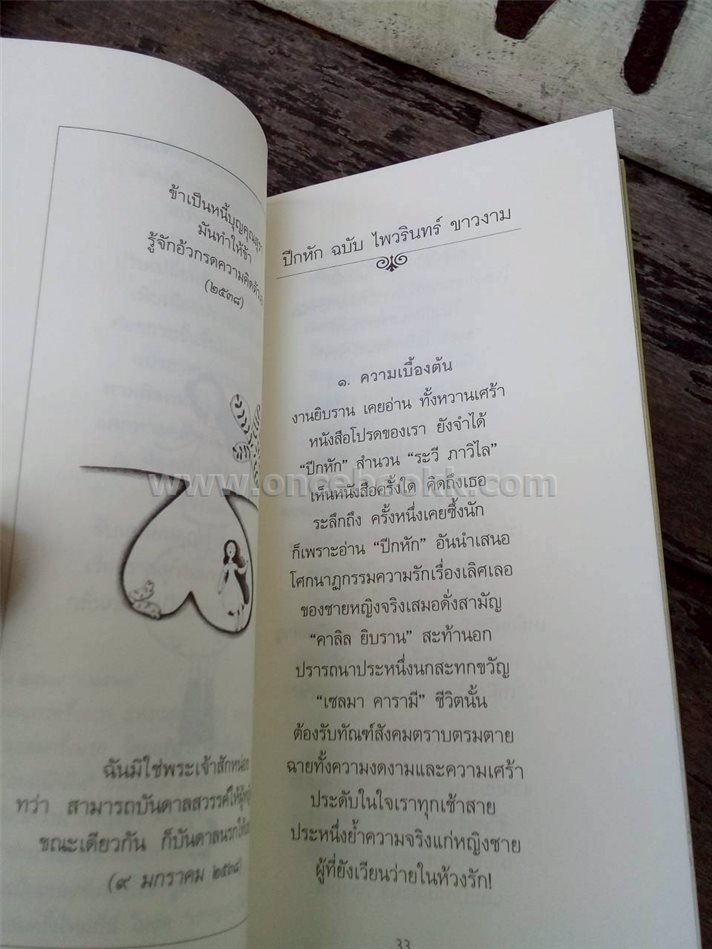 ข้าเป็นหนี้บุญคุณ
มันทำให้ข้า
รู้จักอ้วกรดความคิด
(๒๕๓๘)
ฉันมิใช่พระเจ้าสักหน่อย
ทว่า สามารถบันดาลสวรรค์ให้
ขณะเดียวกัน ก็บันดาลนรก
(๙ มกราคม ๒๕๓๘)
ปีกหัก ฉบับ ไพวรินทร์ ขาวงาม
๑. ความเบื้องต้น
งานยิบราน เคยอ่าน ทั้งหวานเศร้า
หนังสือโปรดของเรา ยังจำได้
“ปีกหัก” สำนวน “ระวี ภาวิไล”
เห็นหนังสือครั้งใด คิดถึงเธอ
ระลึกถึง ครั้งหนึ่งเคยซึ้งนัก
ก็เพราะอ่าน “ปีกหัก” อันนำเสนอ
โศกนาฏกรรมความรักเรื่องเลิศเลอ
ของชายหญิงจริงเสมอดั่งสามัญ
“คาลิล ยิบราน” สะท้านอก
ปรารถนาประหนึ่งนกสะทกขวัญ
“เซลมา คารามี” ชีวิตนั้น
ต้องรับทัณฑ์สังคมตราบตรมตาย
ฉายทั้งความงดงามและความเศร้า
ประดับในใจเราทุกเช้าสาย
ประหนึ่งย้ำความจริงแก่หญิงชาย
ผู้ที่ยังเวียนว่ายในห้วงรัก!
33